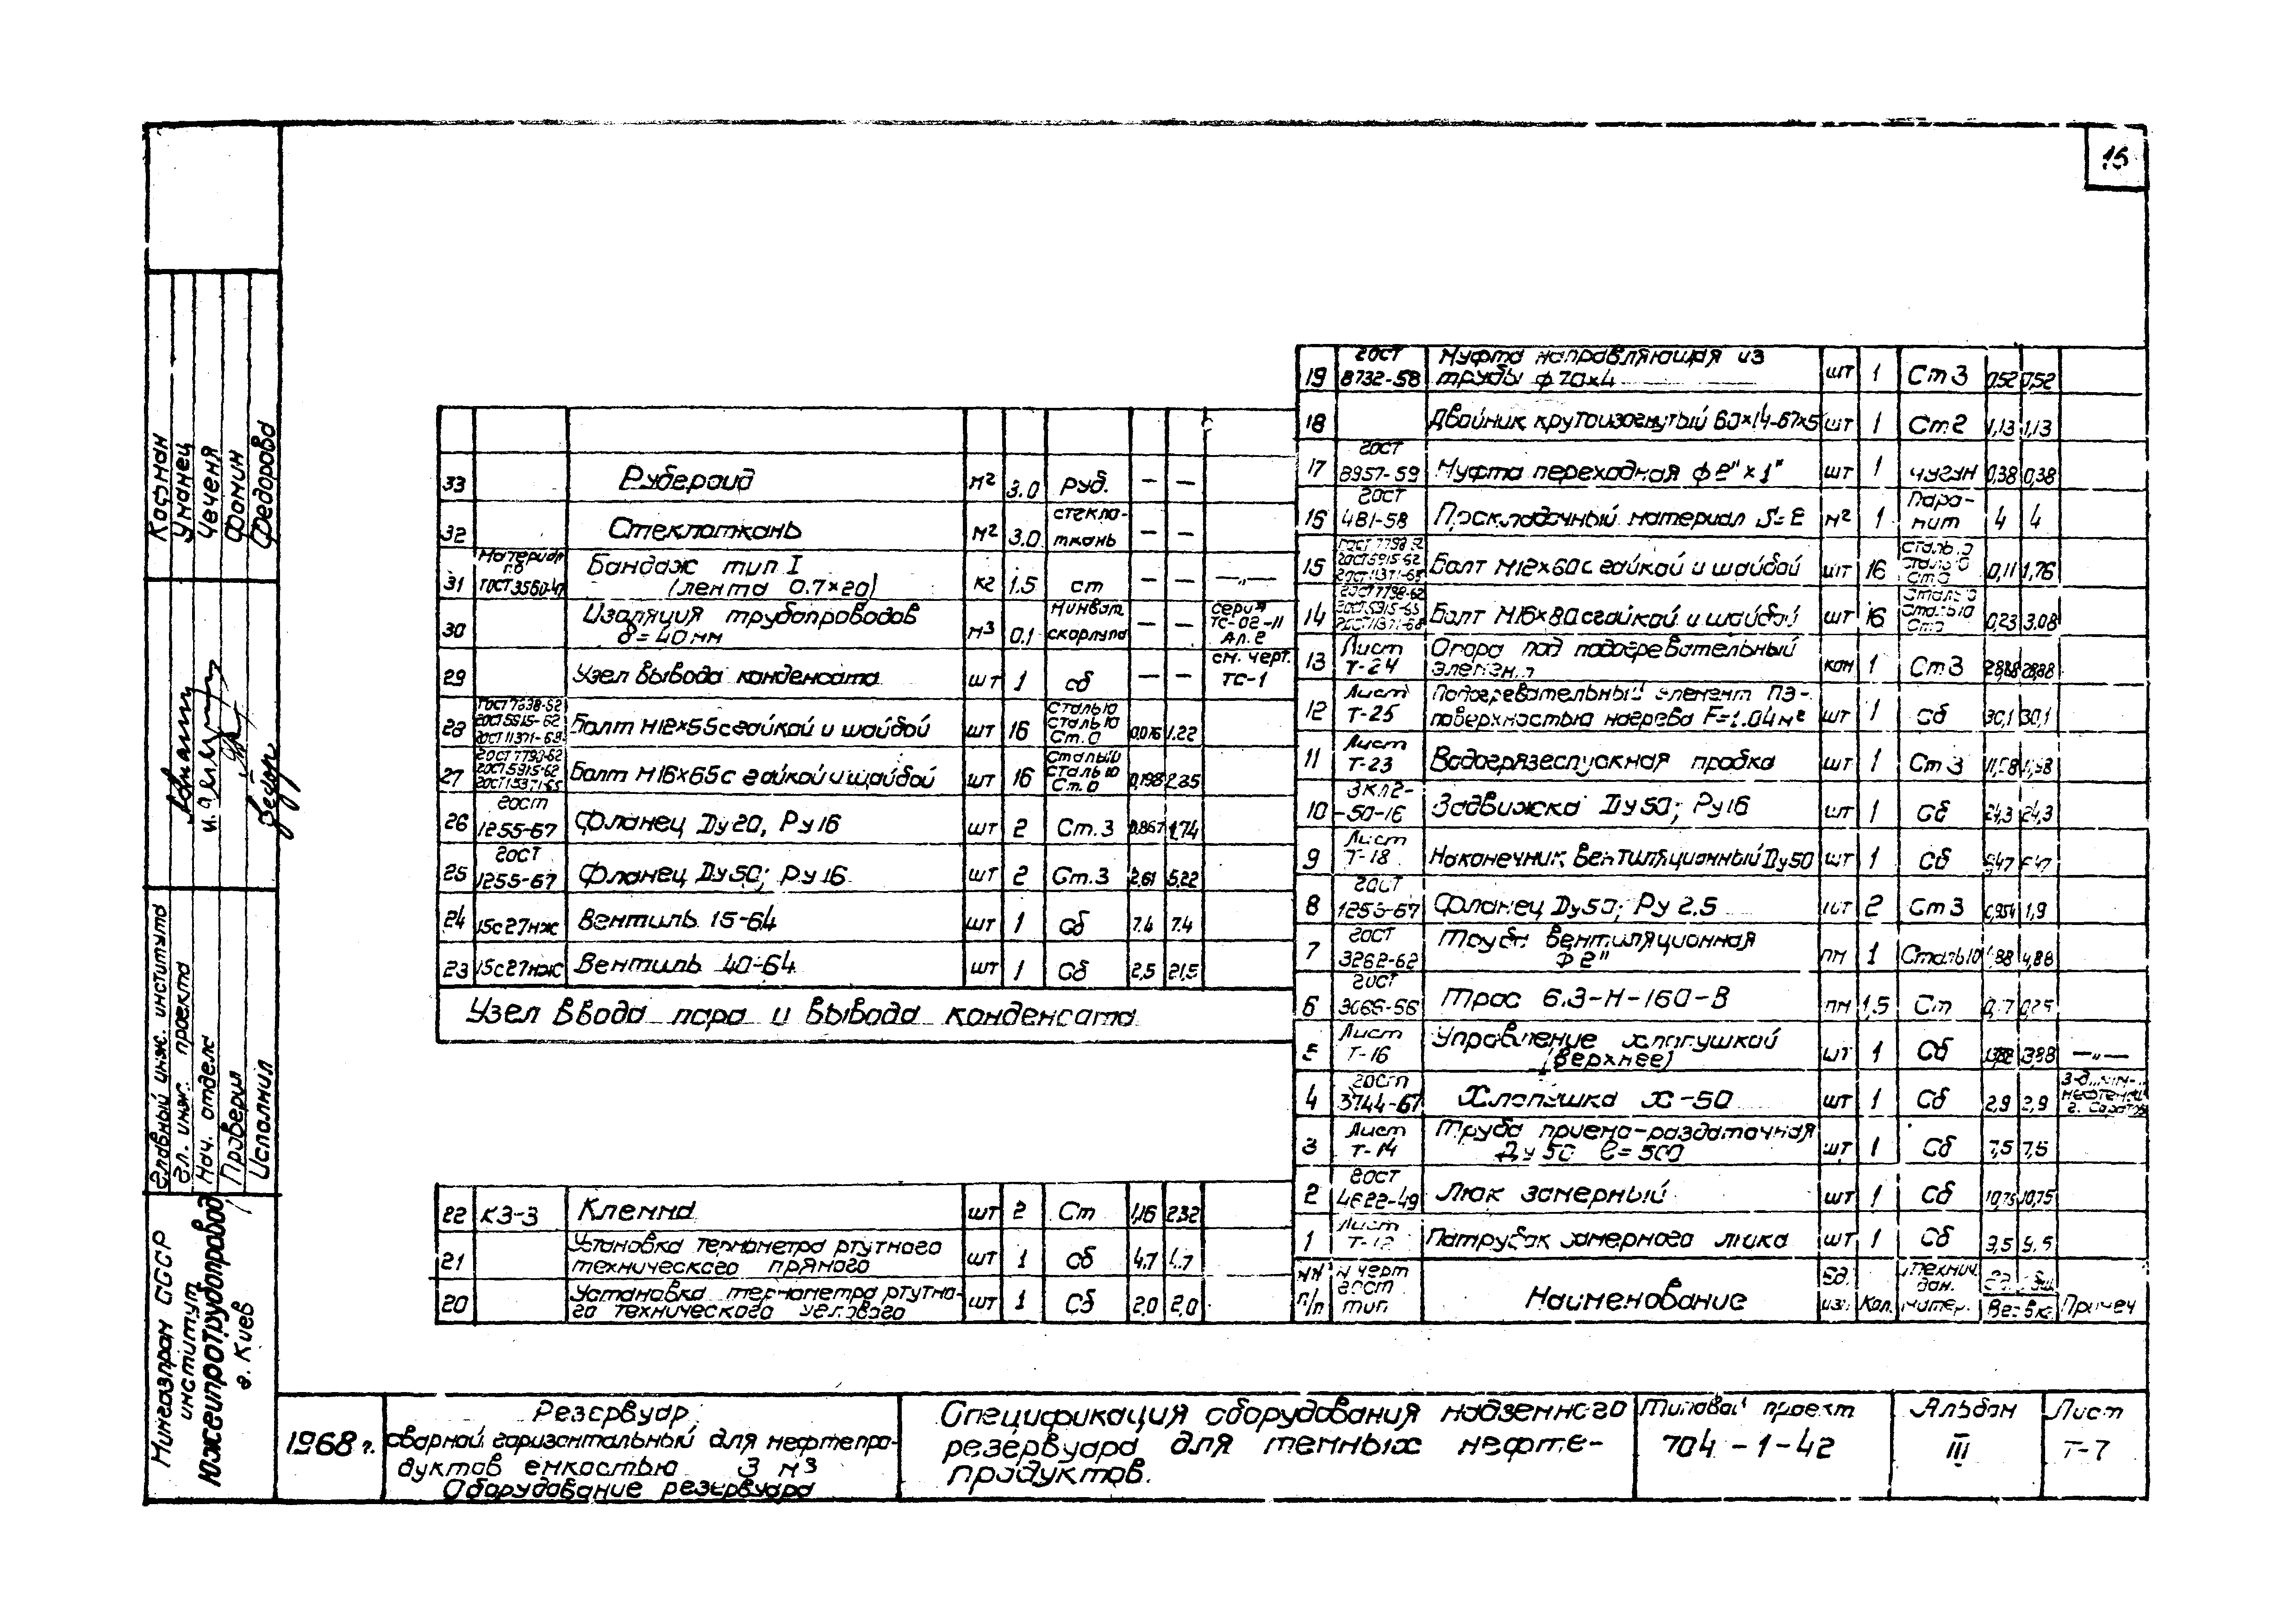 15
19 ГОСТ 8732-58 Муфта направляющая из трубы ф70х4 шт 1 Ст3 0,52 0,52
18 Двойник крутоизогнутый шт 1 Ст.2 1,13 1,13
17 ГОСТ 8957-59 Муфта переходная ф2"х1" шт 1 чугун 0,38 0,38
16 ГОСТ 481-58 Прокладочный материал S=2 м² 1 Паронит 4 4
15 Болт М12х60 с гайкой и шайбой шт 16 0,11 1,76
14 Болт М16х80 с гайкой и шайбой шт 16 0,23 3,08
13 Лист Т-24 Опора под подогревательный элемент ком 1 Ст3 28,88 28,88
12 Лист Т-25 Подогревательный элемент ПЭ- поверхностью нагрева F=1.04м² шт 1 Сб 30,1 30,1
11 Лист Т-23 Водогрязеспускная пробка шт 1 Ст3
10 ЗКЛ2-50-16 Задвижка Ду50; Ру16 шт 1 Сб 24,3 24,3
9 Лист Т-18 Наконечник вентиляционный Ду50 шт 1 Сб
8 ГОСТ 1255-67 Фланец Ду50; Ру 2.5 шт 2 Ст3 0,954 1,9
7 ГОСТ 3262-62 Труба вентиляционная ф2" пм 1 Сталь10 4,88 4,88
6 ГОСТ 3066-66 Трос 6.3-Н-160-В пм 1,5 Ст
5 Лист Т-16 Управление хлопушкой (верхнее) шт 1 Сб 3,88 —„—
4 ГОСТ 3744-67 Хлопушка Х-50 шт 1 Сб 2,9 2,9 г. Саратов
3 Лист Т-14 Труба приемо-раздаточная Ду50 ℓ=500 шт 1 Сб 7,5 7,5
2 ГОСТ 4622-49 Люк замерный шт 1 Сб 10,75 10,75
1 Лист Т-12 Патрубок замерного люка шт 1 Сб
NN п/п N черт гост тип. Наименование Ед. изм. Кол. Технич. дан. матер. Ед. Общ. Вес в кг. Примеч
33 Рубероид м² 3.0 руб. — —
32 Стеклоткань м² 3.0 стеклоткань — —
31 Материал по ГОСТ3560-47 Бандаж тип I (лента 0.7×20) кг 1.5 ст — — —„—
30 Изоляция трубопроводов δ=40мм м³ 0.1 Минват. скорлупа — — серия ТС-02-11 Ал.2
29 Узел вывода конденсата шт 1 сб — — см. черт. ТС-1
28 ГОСТ5915-62 ГОСТ11371-68 Болт М12×55 с гайкой и шайбой шт 16 Сталь10 Сталь10 Ст.0 0,076 1.22
27 ГОСТ7798-62 ГОСТ5915-62 Болт М16×65 с гайкой и шайбой шт 16 Сталь10 Сталь10 Ст.0 0,198
26 ГОСТ 1255-67 Фланец Ду20, Ру16 шт 2 Ст.3 0,867 1,74
25 ГОСТ 1255-67 Фланец Ду50; Ру16 шт 2 Ст.3 2,61 5,22
24 15с27нж Вентиль 15-64 шт 1 Сб 7.4 7.4
23 15с27нж Вентиль 40-64 шт 1 Сб 21,5
Узел ввода пара и вывода конденсата
22 КЗ-3 Клемма шт 2 Ст 1,16 2,32
21 Установка термометра ртутного технического прямого шт 1 Сб 4,7 4,7
20 Установка термометра ртутного технического углового шт 1 Сб 2,0 2,0
1968г.
Резервуар
сварной горизонтальный для нефтепро-
дуктов емкостью 3 м³
Оборудование резервуара
Спецификация оборудования надземного
резервуара для темных нефте-
продуктов.
Типовой проект
704-1-42
Альбом
III
Лист
Т-7
Мингазпром СССР
институт
Южгипротрубопровод
г. Киев
Главный инж. института Кофман
Гл. инж. проекта Уманец
Нач. отдела Чеченя
Проверил Фамин
Исполнил Федорова